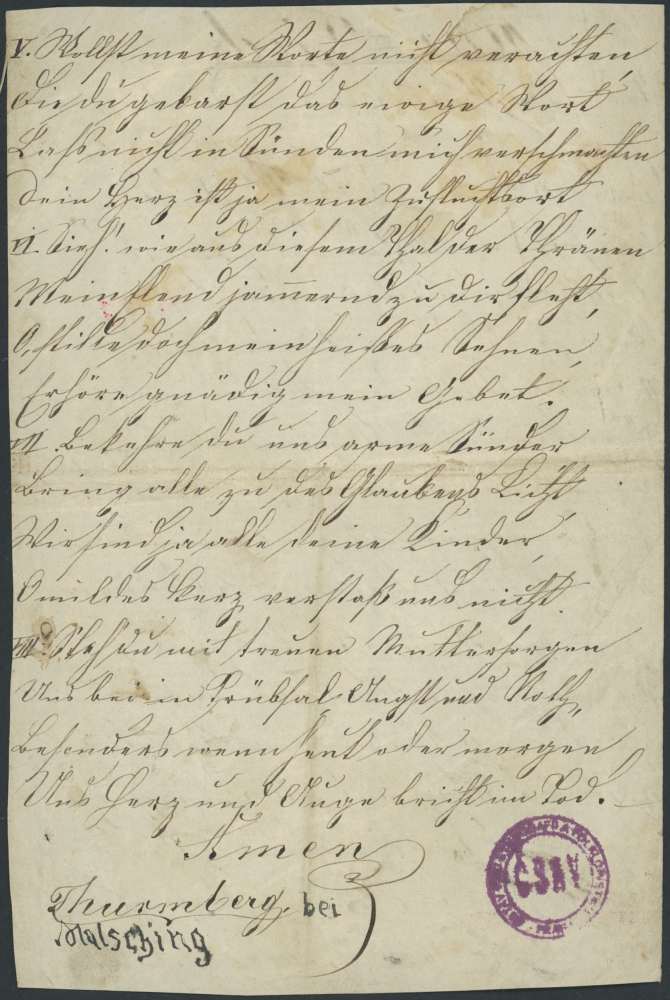 V. Wollst meine Worte nicht verachten,
Die du gebarst das ewige Wort
Laß nicht in Sünden mich verschmachten
Dein Herz ist ja mein Zufluchtsort
VI. Sieh! wie aus diesem Thal der Thränen
Mein Elend jam̄ernd zu dir fleht,
O, stille doch mein heißes Sehnen,
Erhöre gnädig mein Gebet.
VII. Bekehre du uns arme Sünder
Bring alle zu des Glaubens Licht,
Wir sind ja alle deine Kinder,
O mildes Herz verstoß uns nicht.
VIII. Steh du mit treuen Muttersorgen
Uns bei in Trübsal Angst und Noth,
Besonders wenn heut oder morgen
Uns Herz und Auge bricht im Tod.
Amen
Thurmberg, bei
Malsching
ČSAV